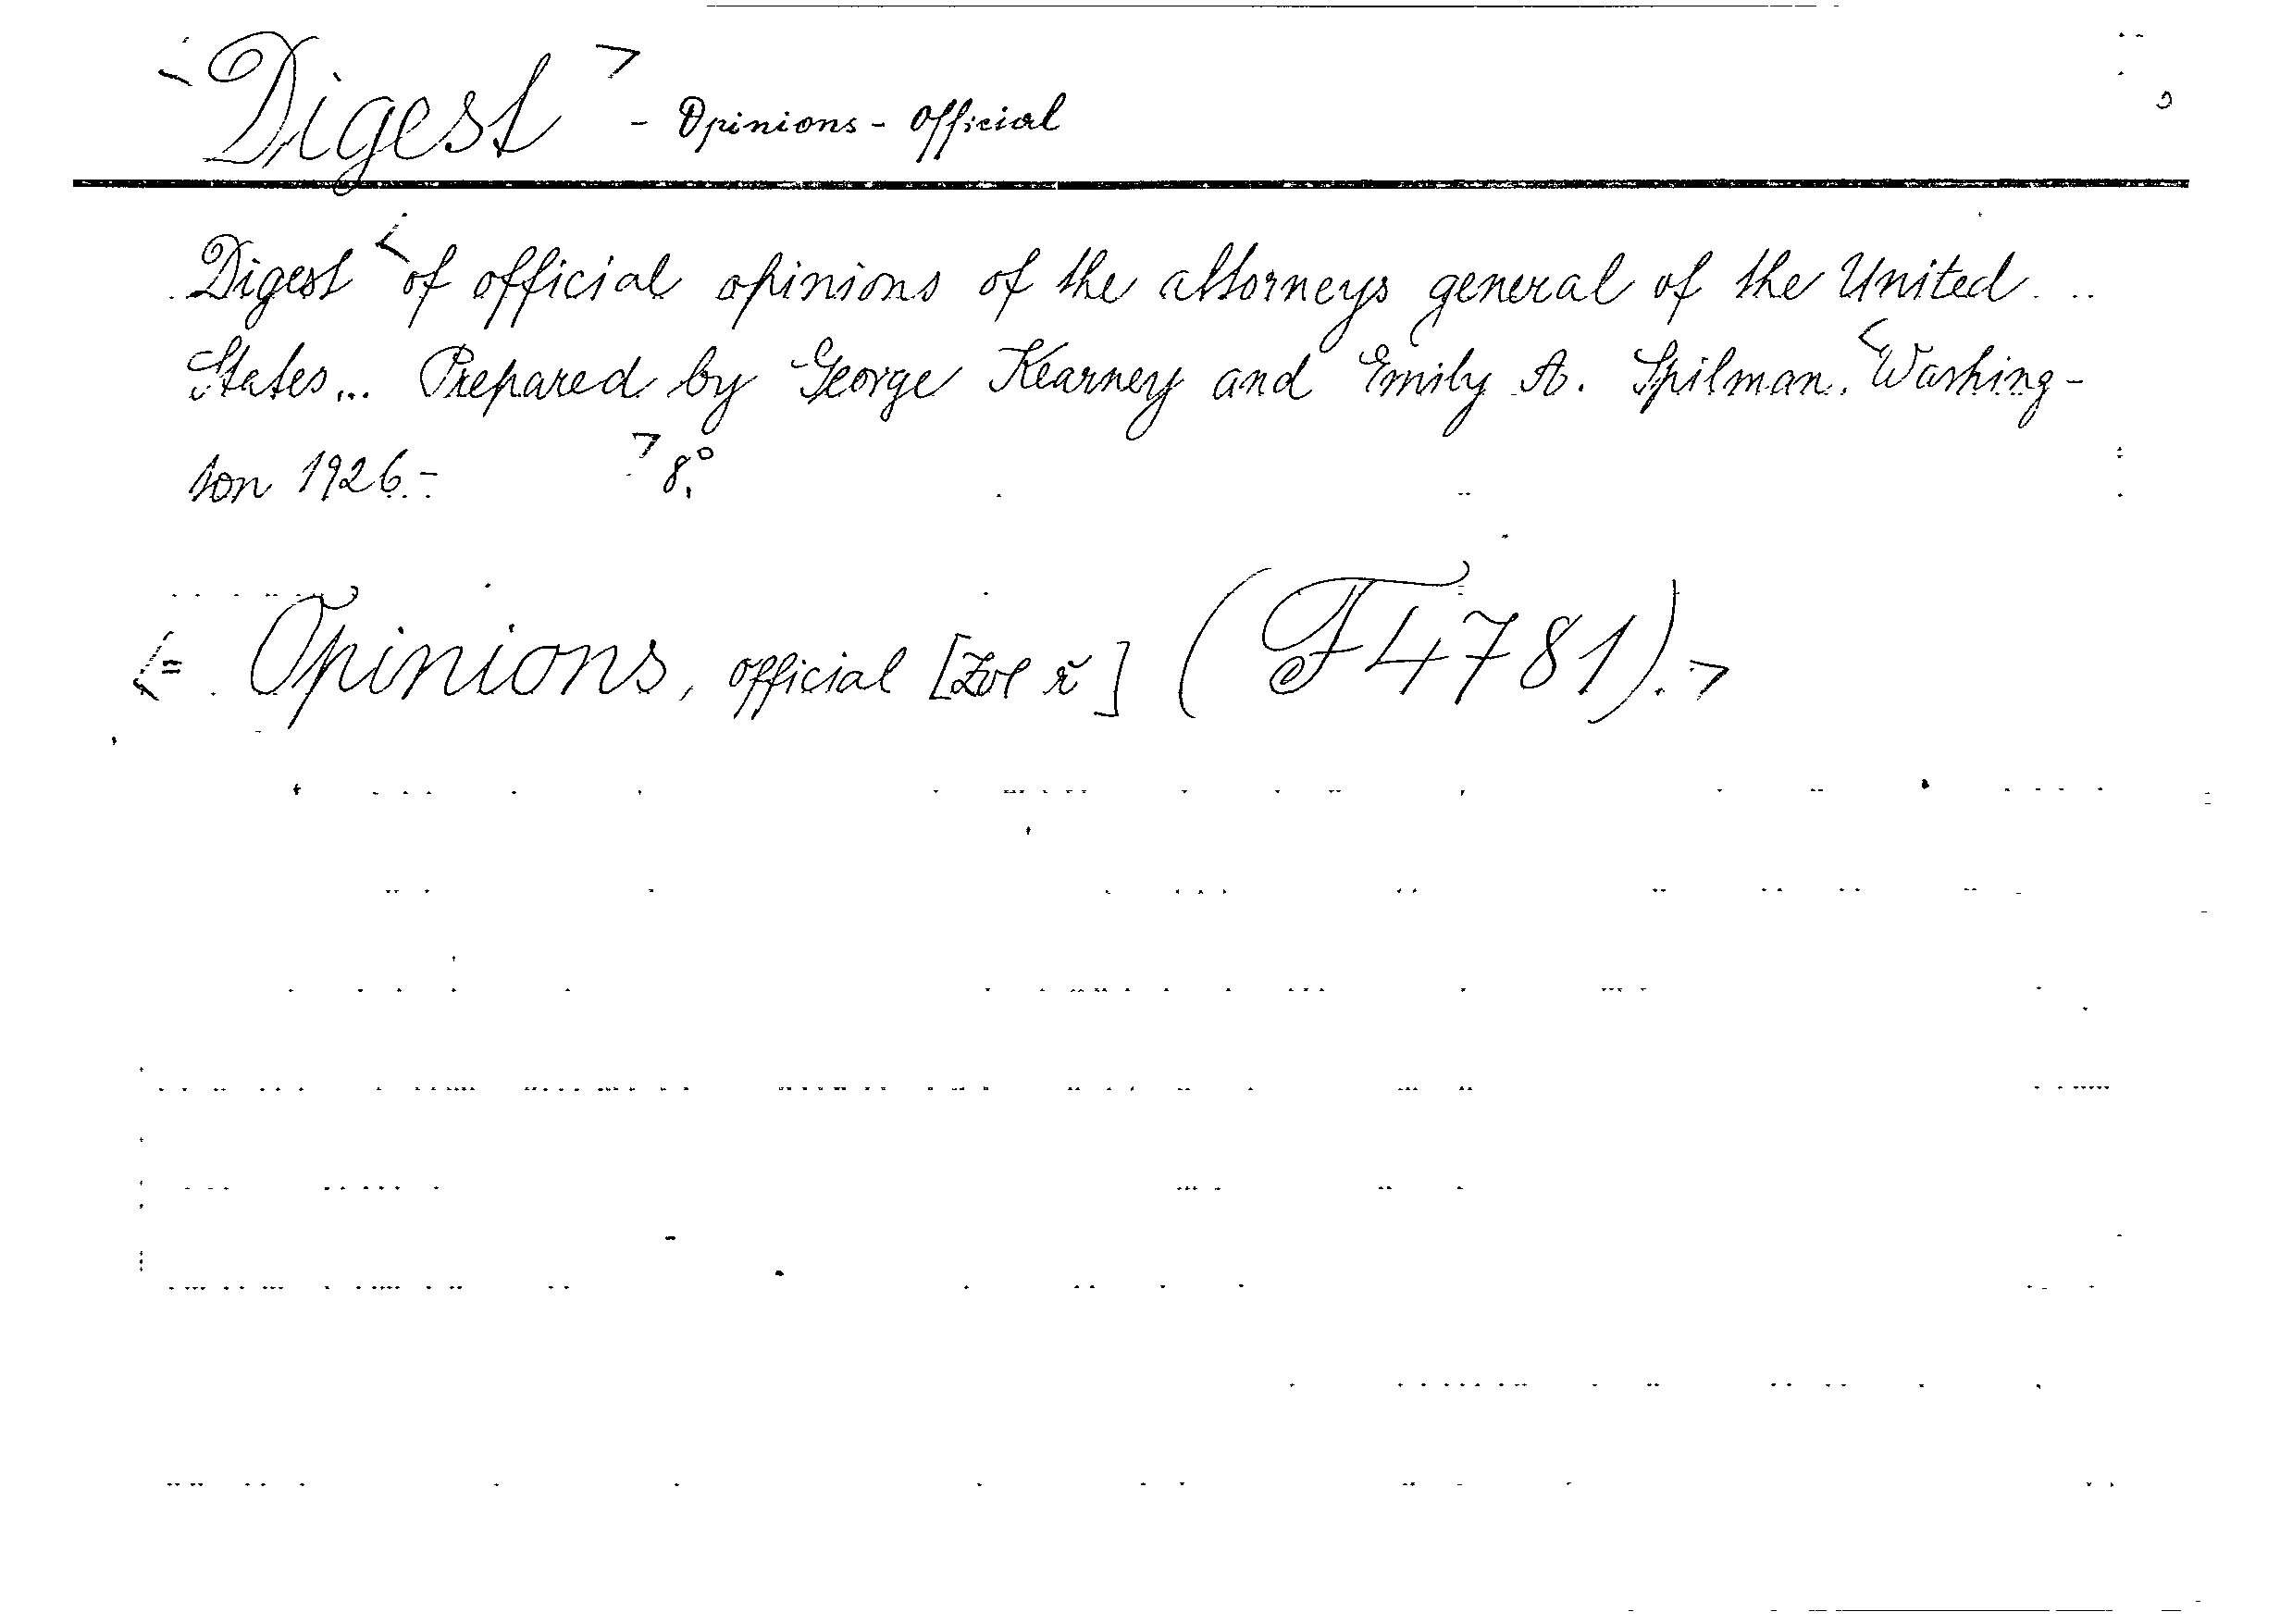 Digest - Opinions - Official
Digest of official opinions of the attorneys general of the United
States... Prepared by George Kearney and Emily A. Spilman. Washing-
ton 1926.- 8°
= Opinions, official [ ] (F4781).